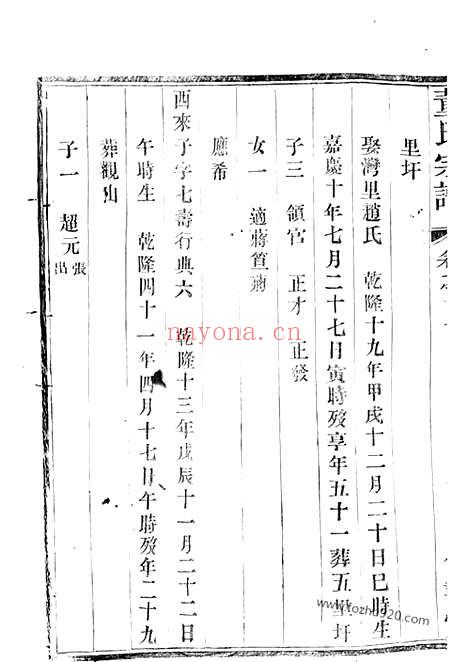 董氏宗譜
里圩
娶灣里趙氏 乾隆十九年甲戌十二月二十日巳時生
嘉慶十年七月二十七日寅時歿享年五十一葬五里圩
子三 領官 正才 正發
女一 適蔣笪
應希
酉來子字七壽行典六 乾隆十三年戊辰十一月二十二日
午時生 乾隆四十一年四月十七日午時歿年二十九
葬觀山
子一 超元 張出
nayona.cn